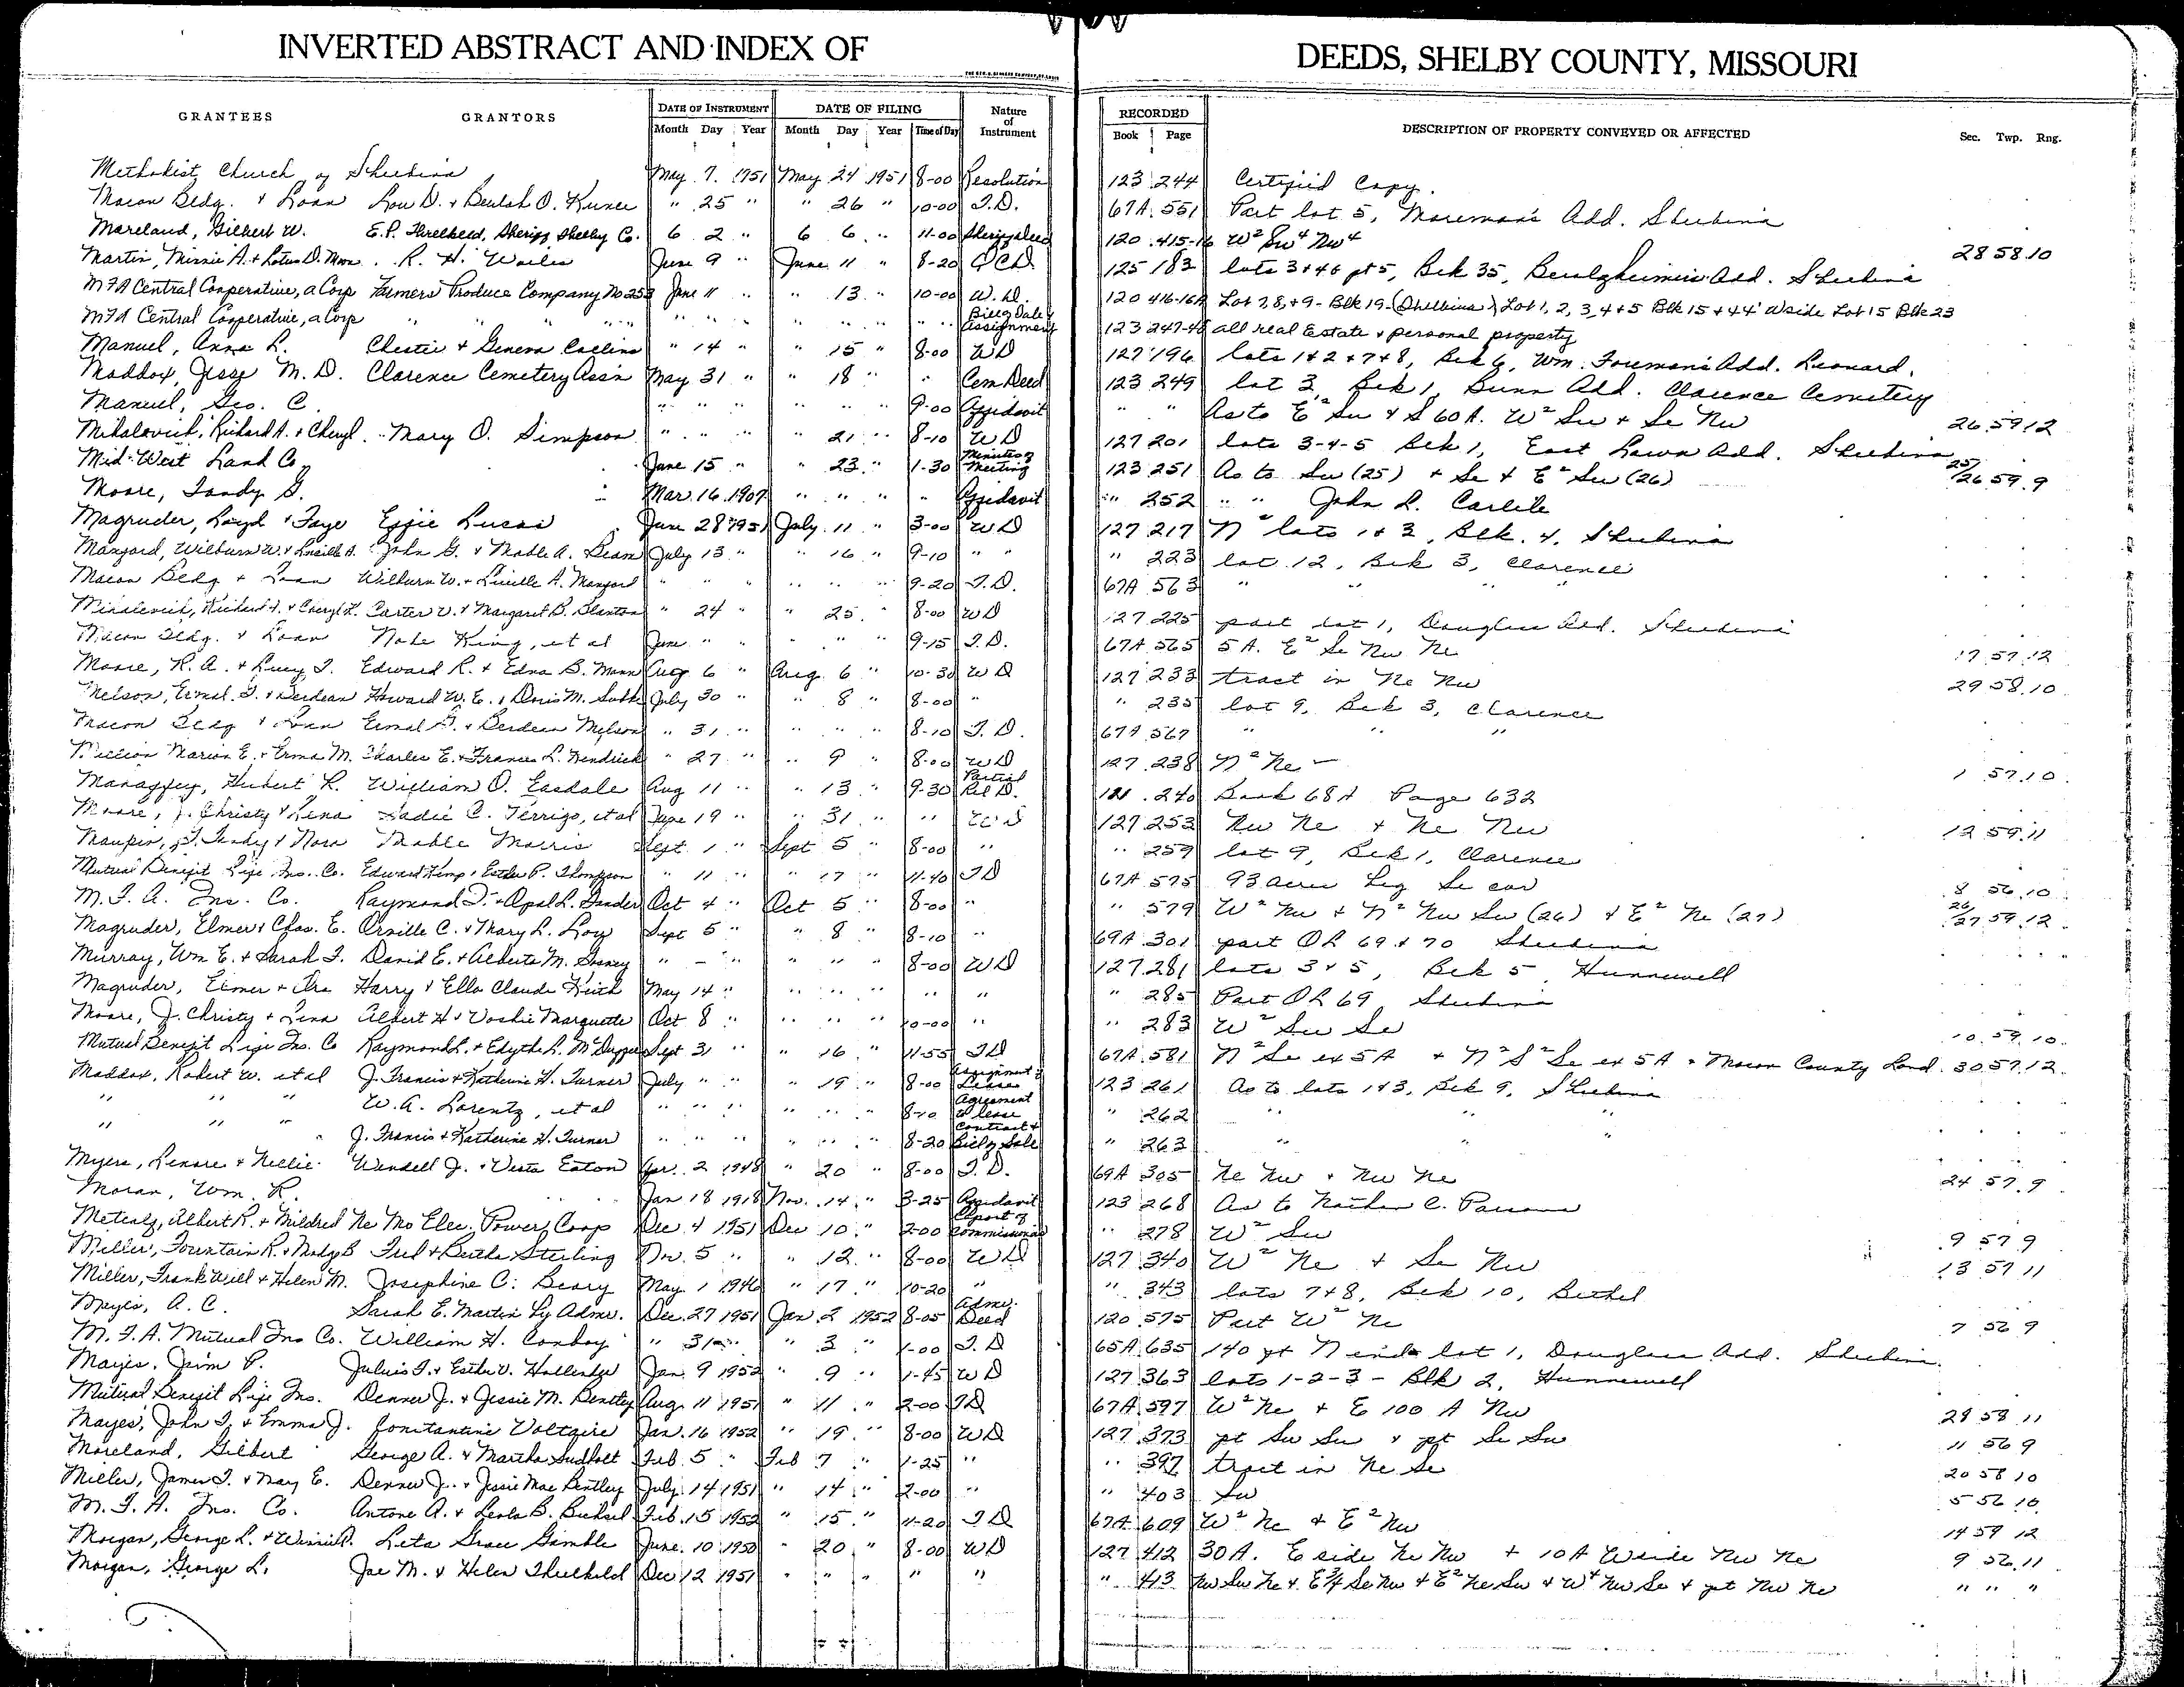 INVERTED ABSTRACT AND INDEX OF DEEDS, SHELBY COUNTY, MISSOURI
GRANTEES GRANTORS DATE OF INSTRUMENT Month Day Year DATE OF FILING Month Day Year Time of Day Nature of Instrument RECORDED Book Page DESCRIPTION OF PROPERTY CONVEYED OR AFFECTED Sec. Twp. Rng.
Methodist Church of Shelbina May 7 1951 May 24 1951 8-00 Resolution 123 244 Certified Copy.
Macon Bldg. & Loan Lou D. & Beulah O. Kunce " 25 " " 26 " 10-00 T.D. 67A 551 Part lot 5, Moreman's Add. Shelbina
Moreland, Gilbert W. E.P. Threlkeld, Sheriff Shelby Co. 6 2 " 6 6 " 11-00 Sheriff's Deed 120 415-16 W² Sw⁴ Nw⁴ 28 58 10
Martin, Minnie A. & Lotus D. Moon R. H. Wailes June 9 " June 11 " 8-20 QCD 125 183 lots 3 & 4 & pt 5, Blk 35, Add. Shelbina
MFA Central Cooperative, a Corp Farmers Produce Company No 253 June 11 " " 13 " 10-00 W.D. 120 416-16A Lot 7, 8, & 9 - Blk 19 (Shelbina) Lot 1, 2, 3, 4 & 5 Blk 15 & 44' W side Lot 15 Blk 23
MFA Central Cooperative, a Corp " " " " " " " " " " " Bill of Sale & Assignment 123 247-48 all real Estate & personal property
Manuel, Anna L. Chester & Geneva Collins " 14 " " 15 " 8-00 WD 127 196 lots 1 & 2 & 7 & 8, Blk 6, Wm. Foreman's Add. Leonard.
Maddox, Jesse M. D. Clarence Cemetery Ass'n May 31 " " 18 " " Cem Deed 123 249 lot 3, Blk 1, Bunn Add. Clarence Cemetery
Manuel, Geo. C. " " " " " " 9-00 Affidavit " " As to E² Sw & S 60 A. W² Sw & Se Nw 26 59 12
Mihalovich, Richard A. & Cheryl Mary O. Simpson " " " " 21 " 8-10 WD 127 201 lots 3-4-5 Blk 1, East Lawn Add. Shelbina
Mid-West Land Co June 15 " " 23 " 1-30 Minutes of Meeting 123 251 As to Sw (25) & Se & E² Sw (26) 25/26 59 9
Moore, Tandy G. Mar. 16 1907 " " " " Affidavit " 252 " " John R. Carlile
Magruder, Loyd & Faye Effie Lucas June 28 1951 July 11 " 3-00 WD 127 217 N² lots 1 & 2, Blk. 4, Shelbina
Mangord, Wilburn W. & Lucille A. John G. & Mable A. Bean July 13 " " 16 " 9-10 " " " 223 lot 12, Blk 3, Clarence
Macon Bldg & Loan Wilburn W. & Lucille A. Mangord " " " " " " 9-20 T.D. 67A 563 " " " "
Mihalovich, Richard A. & Cheryl L. Carter V. & Margaret B. Blanton " 24 " " 25 " 8-00 WD 127 225 part lot 1, Douglass Add. Shelbina
Macon Bldg. & Loan Nobe King, et al June " " " " " 9-15 T.D. 67A 565 5 A. E² Se Nw Ne 17 57 12
Moore, R. A. & Lucy T. Edward R. & Edna B. Mann Aug 6 " Aug. 6 " 10-30 WD 127 233 tract in Ne Nw 29 58 10
Melson, Ermal G. & Berdean Howard W. E. & Doris M. July 30 " " 8 " 8-00 " " 235 lot 9, Blk 3, Clarence
Macon Bldg & Loan Ermal G. & Berdean Melson " 31 " " " " 8-10 T.D. 67A 567 " " "
Million Marion E. & Erma M. Charles E. & Frances L. Hendrick " 27 " " 9 " 8-00 WD 127 238 N² Ne 1 57 10
Managfey, Hubert R. William O. Easdale Aug 11 " " 13 " 9-30 Partial Rel D. 121 240 Book 68A Page 632
Moore, J. Christy & Lena Sadie C. Terrigo, et al June 19 " " 31 " " WD 127 253 Nw Ne & Ne Nw 12 59 11
Maupin, J. Tandy & Nora Mable Morris Sept. 1 " Sept 5 " 8-00 " " 259 lot 9, Blk 1, Clarence
Mutual Benefit Life Ins. Co. Edward Kemp & Esther P. Thompson " 11 " " 17 " 11-40 TD 67A 575 93 acres beg Se cor 8 56 10
M. F. A. Ins. Co. Raymond T. & Opal L. Oct 4 " Oct 5 " 8-00 " " 579 W² Nw & N² Nw Sw (26) & E² Ne (27) 26/27 59 12
Magruder, Elmer & Chas. E. Orville C. & Mary L. Loy Sept 5 " " 8 " 8-10 " 69A 301 part OL 69 & 70 Shelbina
Murray, Wm E. & Sarah F. David E. & Alberta M. " - " " " " 8-00 WD 127 281 lots 3 & 5, Blk 5, Hunnewell
Magruder, Elmer & Ora Harry & Ella Claude Keith May 14 " " " " " " " 285 Part OL 69 Shelbina
Moore, J. Christy & Lena Albert H & Voshie Marquette Oct 8 " " " " 10-00 " " 283 W² Sw Se 10 59 10
Mutual Benefit Life Ins. Co Raymond L. & Edythe L. McDuffee Sept 31 " " 16 " 11-55 TD 67A 581 N² Se ex 5A & N² S² Se ex 5A & Macon County Land. 30 57 12
Maddox, Robert W. et al J. Francis & Katherine H. Turner July " " " 19 " 8-00 Assignment of Lease 123 261 As to lots 1 & 3, Blk 9, Shelbina
" " " W. A. Lorentz, et al " " " " " " 8-10 Agreement to lease " 262 " " "
" " " J. Francis & Katherine H. Turner " " " " " " 8-20 Contract & Bill of Sale " 263 " " "
Myers, Lenore & Nellie Wendell J. & Vesta Eaton Apr. 2 1948 " 20 " 8-00 T.D. 69A 305 Ne Nw & Nw Ne 24 57 9
Moran, Wm. R. Jan 18 1918 Nov. 14 " 3-25 Affidavit 123 268 As to Nathan C. Parsons
Metcalf, Albert R. & Mildred Ne Mo Elec. Power Coop Dec 4 1951 Dec 10 " 2-00 Report of Commissioners " 278 W² Sw 9 57 9
Miller, Fountain R. & Madge B Fred & Bertha Sterling Nov. 5 " " 12 " 8-00 WD 127 340 W² Ne & Se Nw 13 57 11
Miller, Frank Will & Helen M. Josephine C. Beary May 1 1946 " 17 " 10-20 " " 343 lots 7 & 8, Blk 10, Bethel
Meyer, A. C. Sarah E. Martin by Admr. Dec. 27 1951 Jan. 2 1952 8-05 Admr. Deed 120 575 Part W² Ne 7 56 9
M. F. A. Mutual Ins Co. William H. Conboy " 31 " " 3 " 1-00 T.D 65A 635 140 ft N end lot 1, Douglass Add. Shelbina.
Mayes, Jim P. Julius F. & Esther V. Jan. 9 1952 " 9 " 1-45 WD 127 363 lots 1-2-3 - Blk 2, Hunnewell
Mutual Benefit Life Ins. Denner J. & Jessie M. Bentley Aug. 11 1951 " 11 " 2-00 TD 67A 597 W² Ne & E 100 A Nw 29 58 11
Mayes, John T. & Emma J. Constantine Voltaire Jan. 16 1952 " 19 " 8-00 WD 127 373 pt Sw Sw & pt Se Sw 11 56 9
Moreland, Gilbert George A. & Martha Sudholt Feb. 5 " Feb 7 " 1-25 " " 397 tract in Ne Se 20 58 10
Miller, James T. & May E. Denner J. & Jessie Mae Bentley July 14 1951 " 14 " 2-00 " " 403 Sw 5 56 10
M. F. A. Ins. Co. Antone A. & Leola B. Feb. 15 1952 " 15 " 11-20 TD 67A 609 W² Ne & E² Nw 14 59 12
Morgan, George L. & Winnie R. Leta Grace Gamble June. 10 1950 " 20 " 8-00 WD 127 412 30 A. E side Ne Nw & 10 A W side Nw Ne 9 56 11
Morgan, George L. Joe M. & Helen Threlkeld Dec 12 1951 " " " " " " 413 Nw Sw Ne & E¾ Se Nw & E² Ne Sw & W⁴ Nw Se & pt Nw Ne " " "